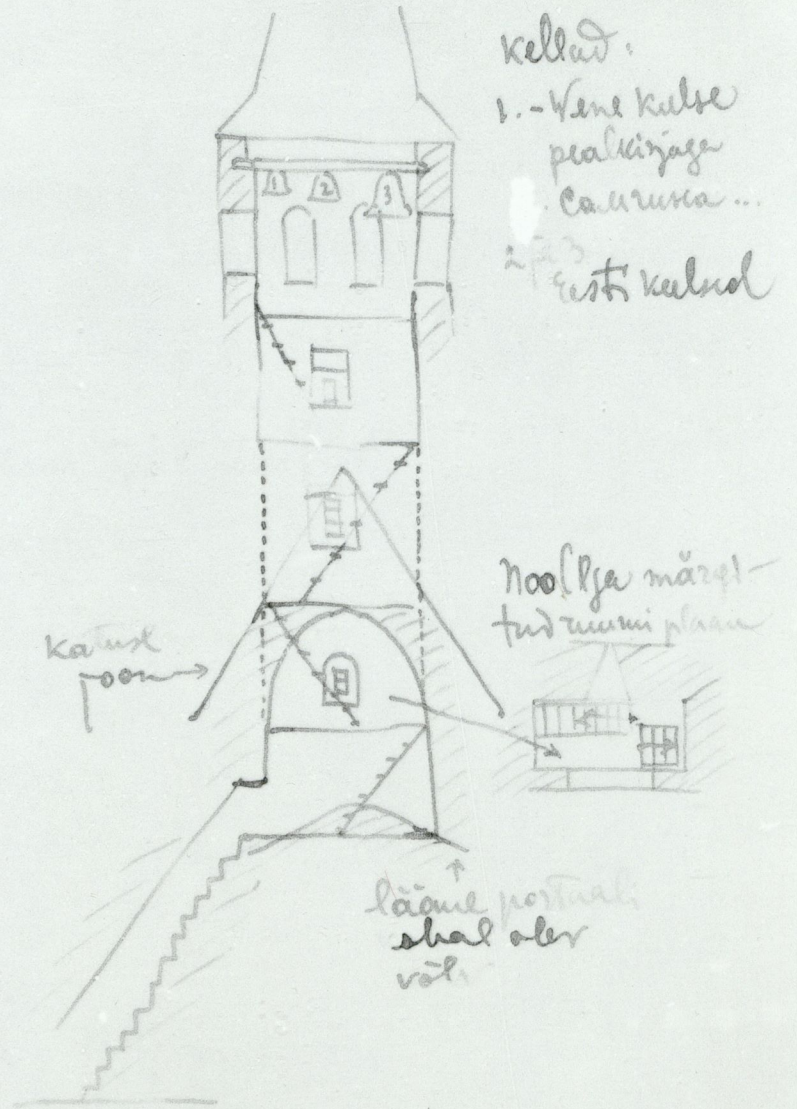 Kellad:
1. - Wene keelse
pealkirjaga
2 ja 3
Eesti keelsed
1 2 3
Noolega märgi-
tud ruumi plaan
Katuse
joon
lääne portaali
kohal olev
võlv